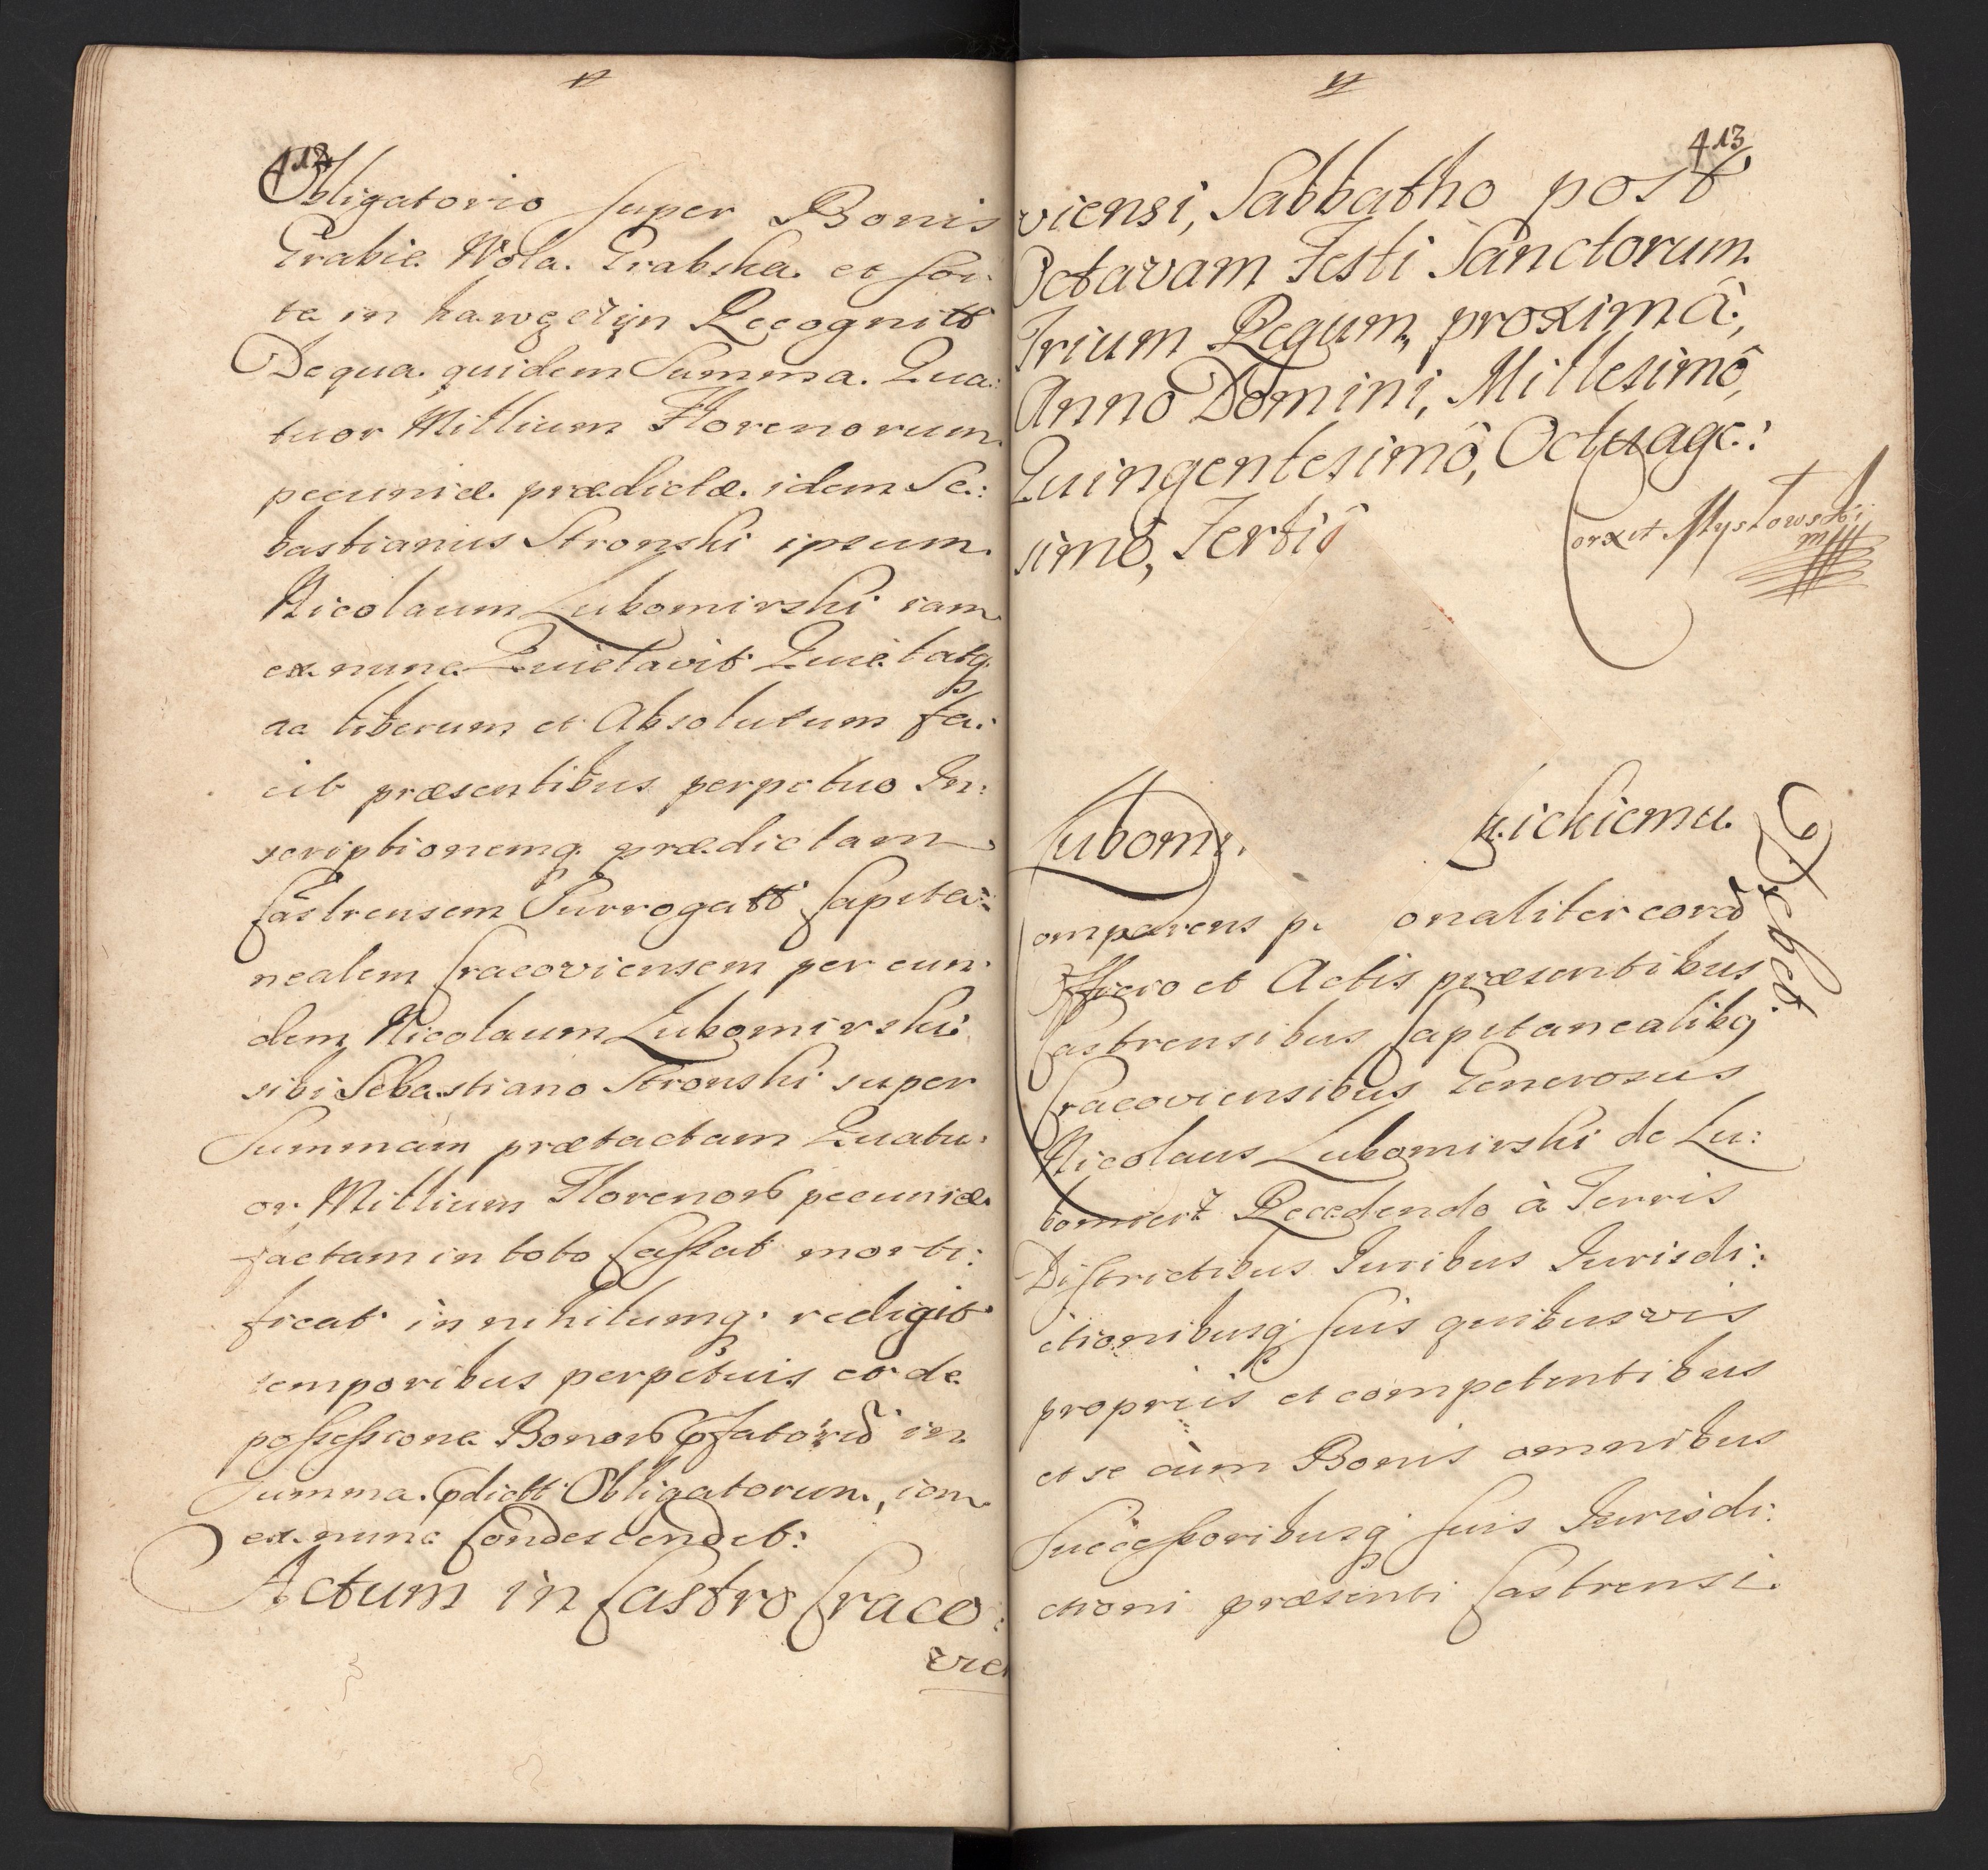 412
Obligatorio super Bonis
Grabie Wola Grabska et sor
te in
Recognitt
De qua quidem Summa Qua:
tuor Millium Florenorum
pecuniæ prædictæ idem Se:
bastianus Stronski ipsum
Nicolaum Lubomirski iam
ex nunc Quietavit Quietatq
ac liberum et Absolutum fa:
cit præsentibus perpetuo In:
scriptionemq prædictam
Castrensem Surrogatt Capita:
nealem Cracoviensem per eun
dem Nicolaum Lubomirski
sibi Sebastiano Stronski super
Summam prætactam Quatu:
or Millium Floreno℞ pecuniæ
factam in toto Cassat morti:
ficat in nihilumq redigit
temporibus perpetuis et de
possessione Bono℞ in
Summa pdictt Obligatorum, iam
ex nunc Condescendet:
Actum in Castro Craco:
vie
413
viensi, Sabbatho post
Octavam Festi Sanctorum
Trium Regum, proximâ,
Anno Domini, Millesimô,
Quingentesimô, Octuage:
simô, Tertiô
Corxit Mysłowski
mp
Lubomi
kickiemu
Debet
Comparens p onaliter cora
Officio et Actis præsentibus
Castrensibus Capitanealibq
Cracoviensibus Generosus
Nicolaus Lubomirski de Lu:
bomierz Recedendo à Terris
Districtibus Iuribus Iurisdi:
ctionibusq suis quibusvis
propriis et competentibus
et se cum Bonis omnibus
Successoribusq suis Iurisdi:
ctioni præsenti Castrensi